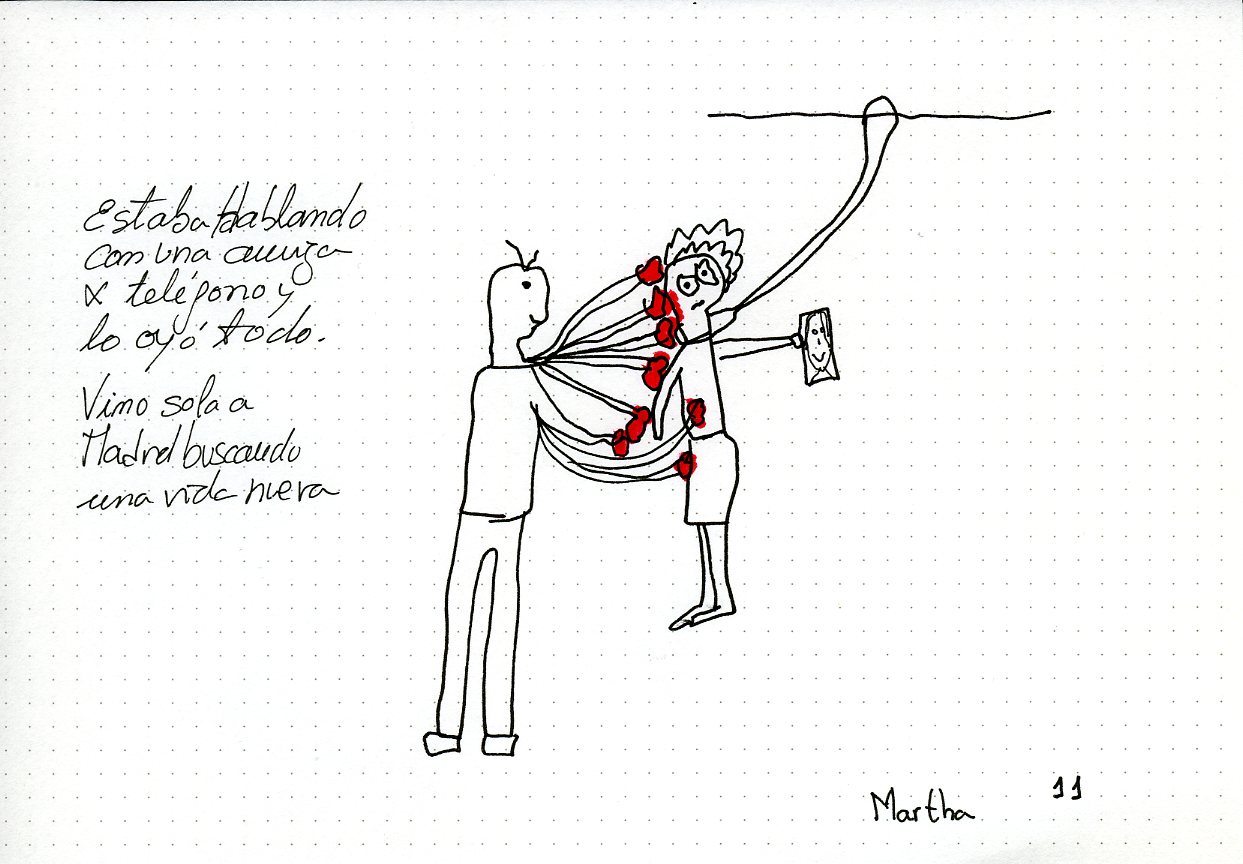 Estaba Hablando
con una amiga
x teléfono y
lo oyó todo.
Vino sola a
Madrid buscando
una vida nueva
Martha
11